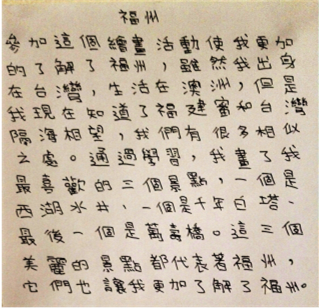 福州
參加這個繪畫活動使我更加
的了解了福州，雖然我出身
在台灣，生活在澳洲，但是
我現在知道了福建省和台灣
隔海相望，我們有很多相似
之處。通過學習，我畫了我
最喜歡的三個景點，一個是
西湖水井、一個是千年白塔、
最後一個是萬壽橋。這三個
美麗的景點都代表著福州，
它們也讓我更加了解了福州。